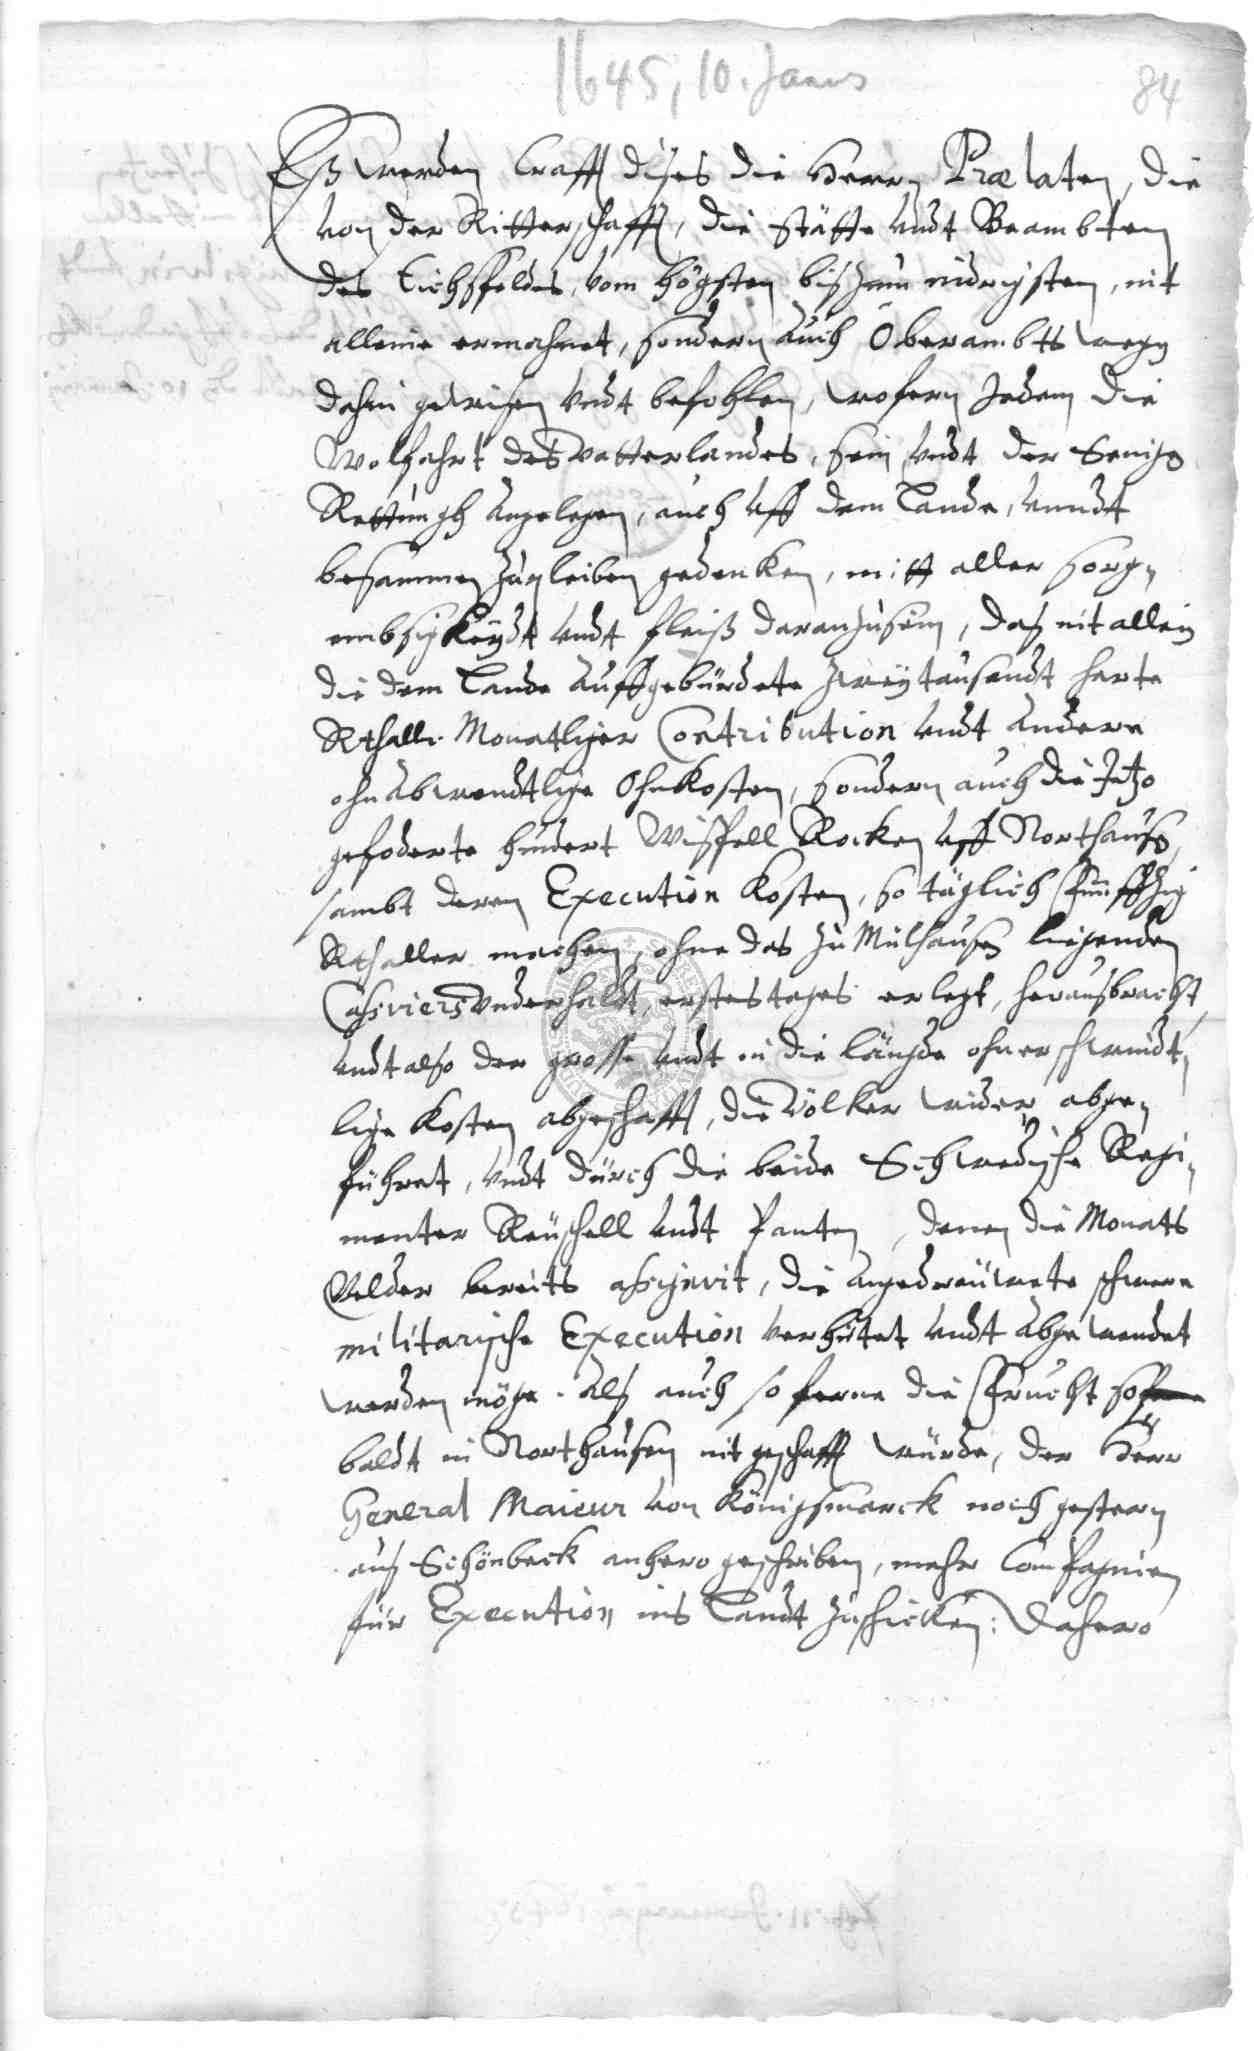 1645, 10. Janus
84
Eß werden Crafft dises die Herrn Prælaten, die
von der Ritterschafft, die Stätte undt Beambten
des Eichsfeldes, vom högsten bis zum nidrigsten, nit
alleine ermahnet, sondern auch Oberambts wegen
dahin gewisen undt befohlen, wofern Jedem die
Wolfahrt des vatterlandes, sein undt der Seinige
Rettungh angelegen, auch uff dem Lande, unndt
besammen zupleiben gedenken, mitt aller sorg-
embsigkeydt undt fleiß daranzusein, das nit allein
die dem Lande auffgebürdete zweytausendt harte
Rthallr Monatliger Contribution undt andere
ohnabwendtlige Ohnkosten, sondern auch die Jetzo
gefoderte hundert Wispell Rocken uff Northausen,
sambt deren Execution Kosten, so täglich funffzig
Rthaller machen, ohne des zu Mülhausen ligenden
Cassirers underhaldt, erstes tages erlegt, herausbracht,
undt also der grosse undt in die längde ohnerschwindt-
lige Kosten abgeschafft, die Völker wider abge-
führet, undt durch die beide Schwedische Regi-
menter Reuschell undt Panten, denen die Monats
Gelder bereits assignirt, die angedreuwete schwere
militarische Execution verhütet undt abgewendet
werden möge. Als auch so ferne die Frucht so
baldt in Northausen nit geschafft würde, der Herr
General Maieur von Königsmarck noch gestern
aus Schönbeck anhero geschriben, mehr Compagnien
für Execution ins Landt zuschicken: Dahero